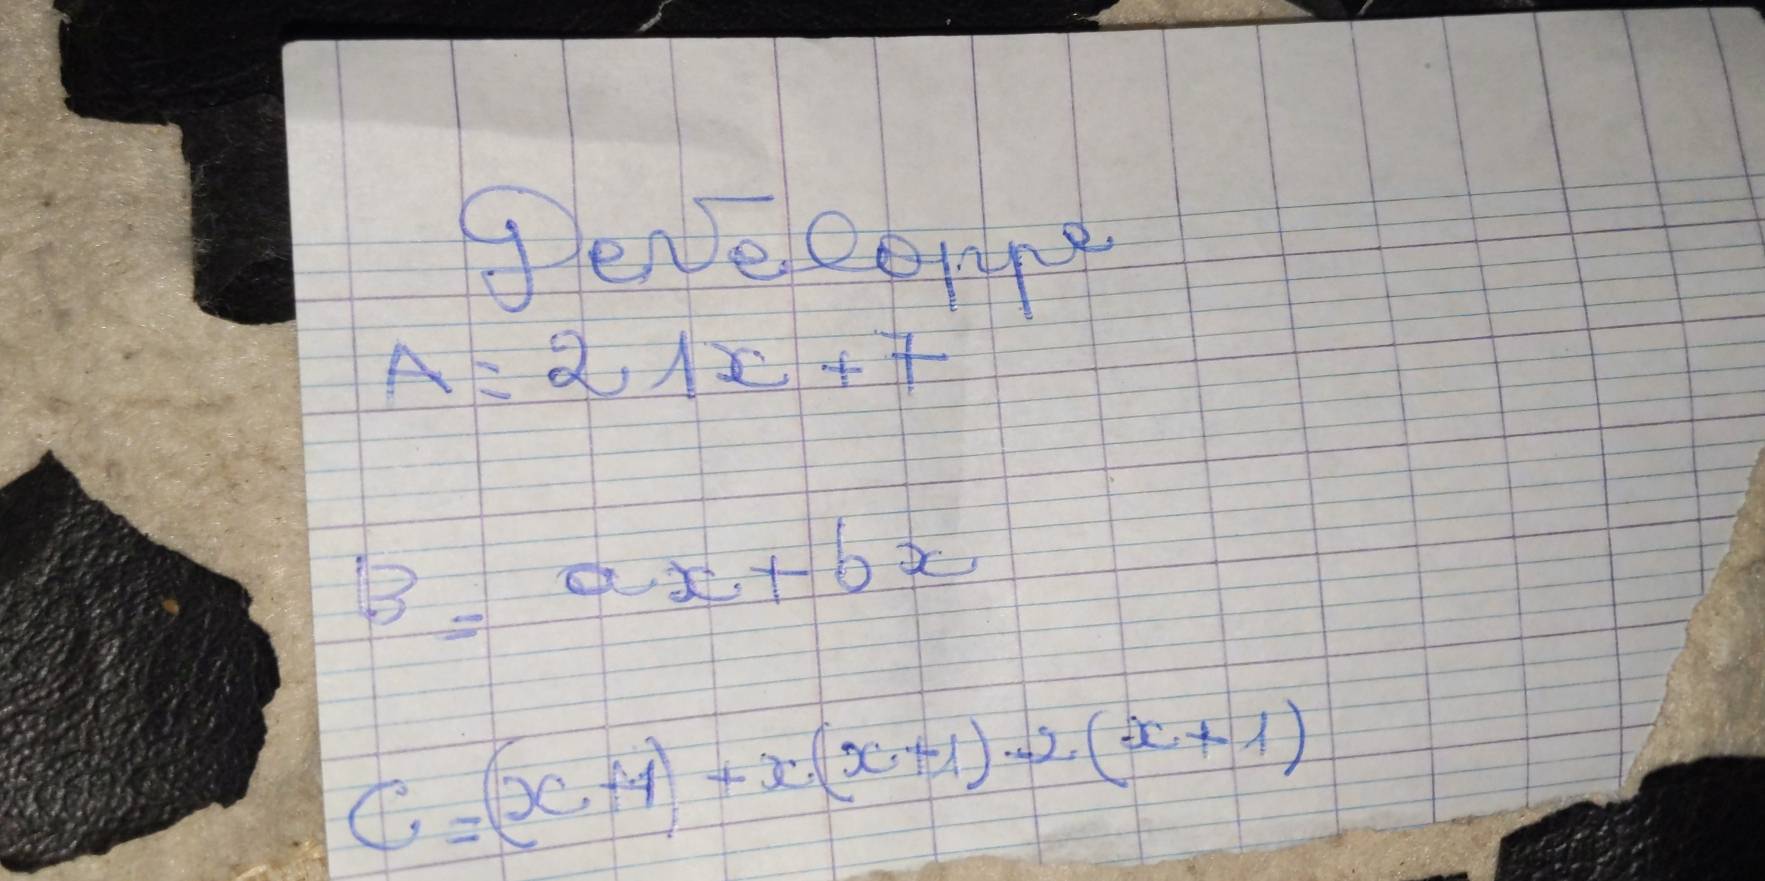 Developpe
A = 21x + 7
B = ax + bx
C = (x+1) + x(x+1) - 2(x+1)